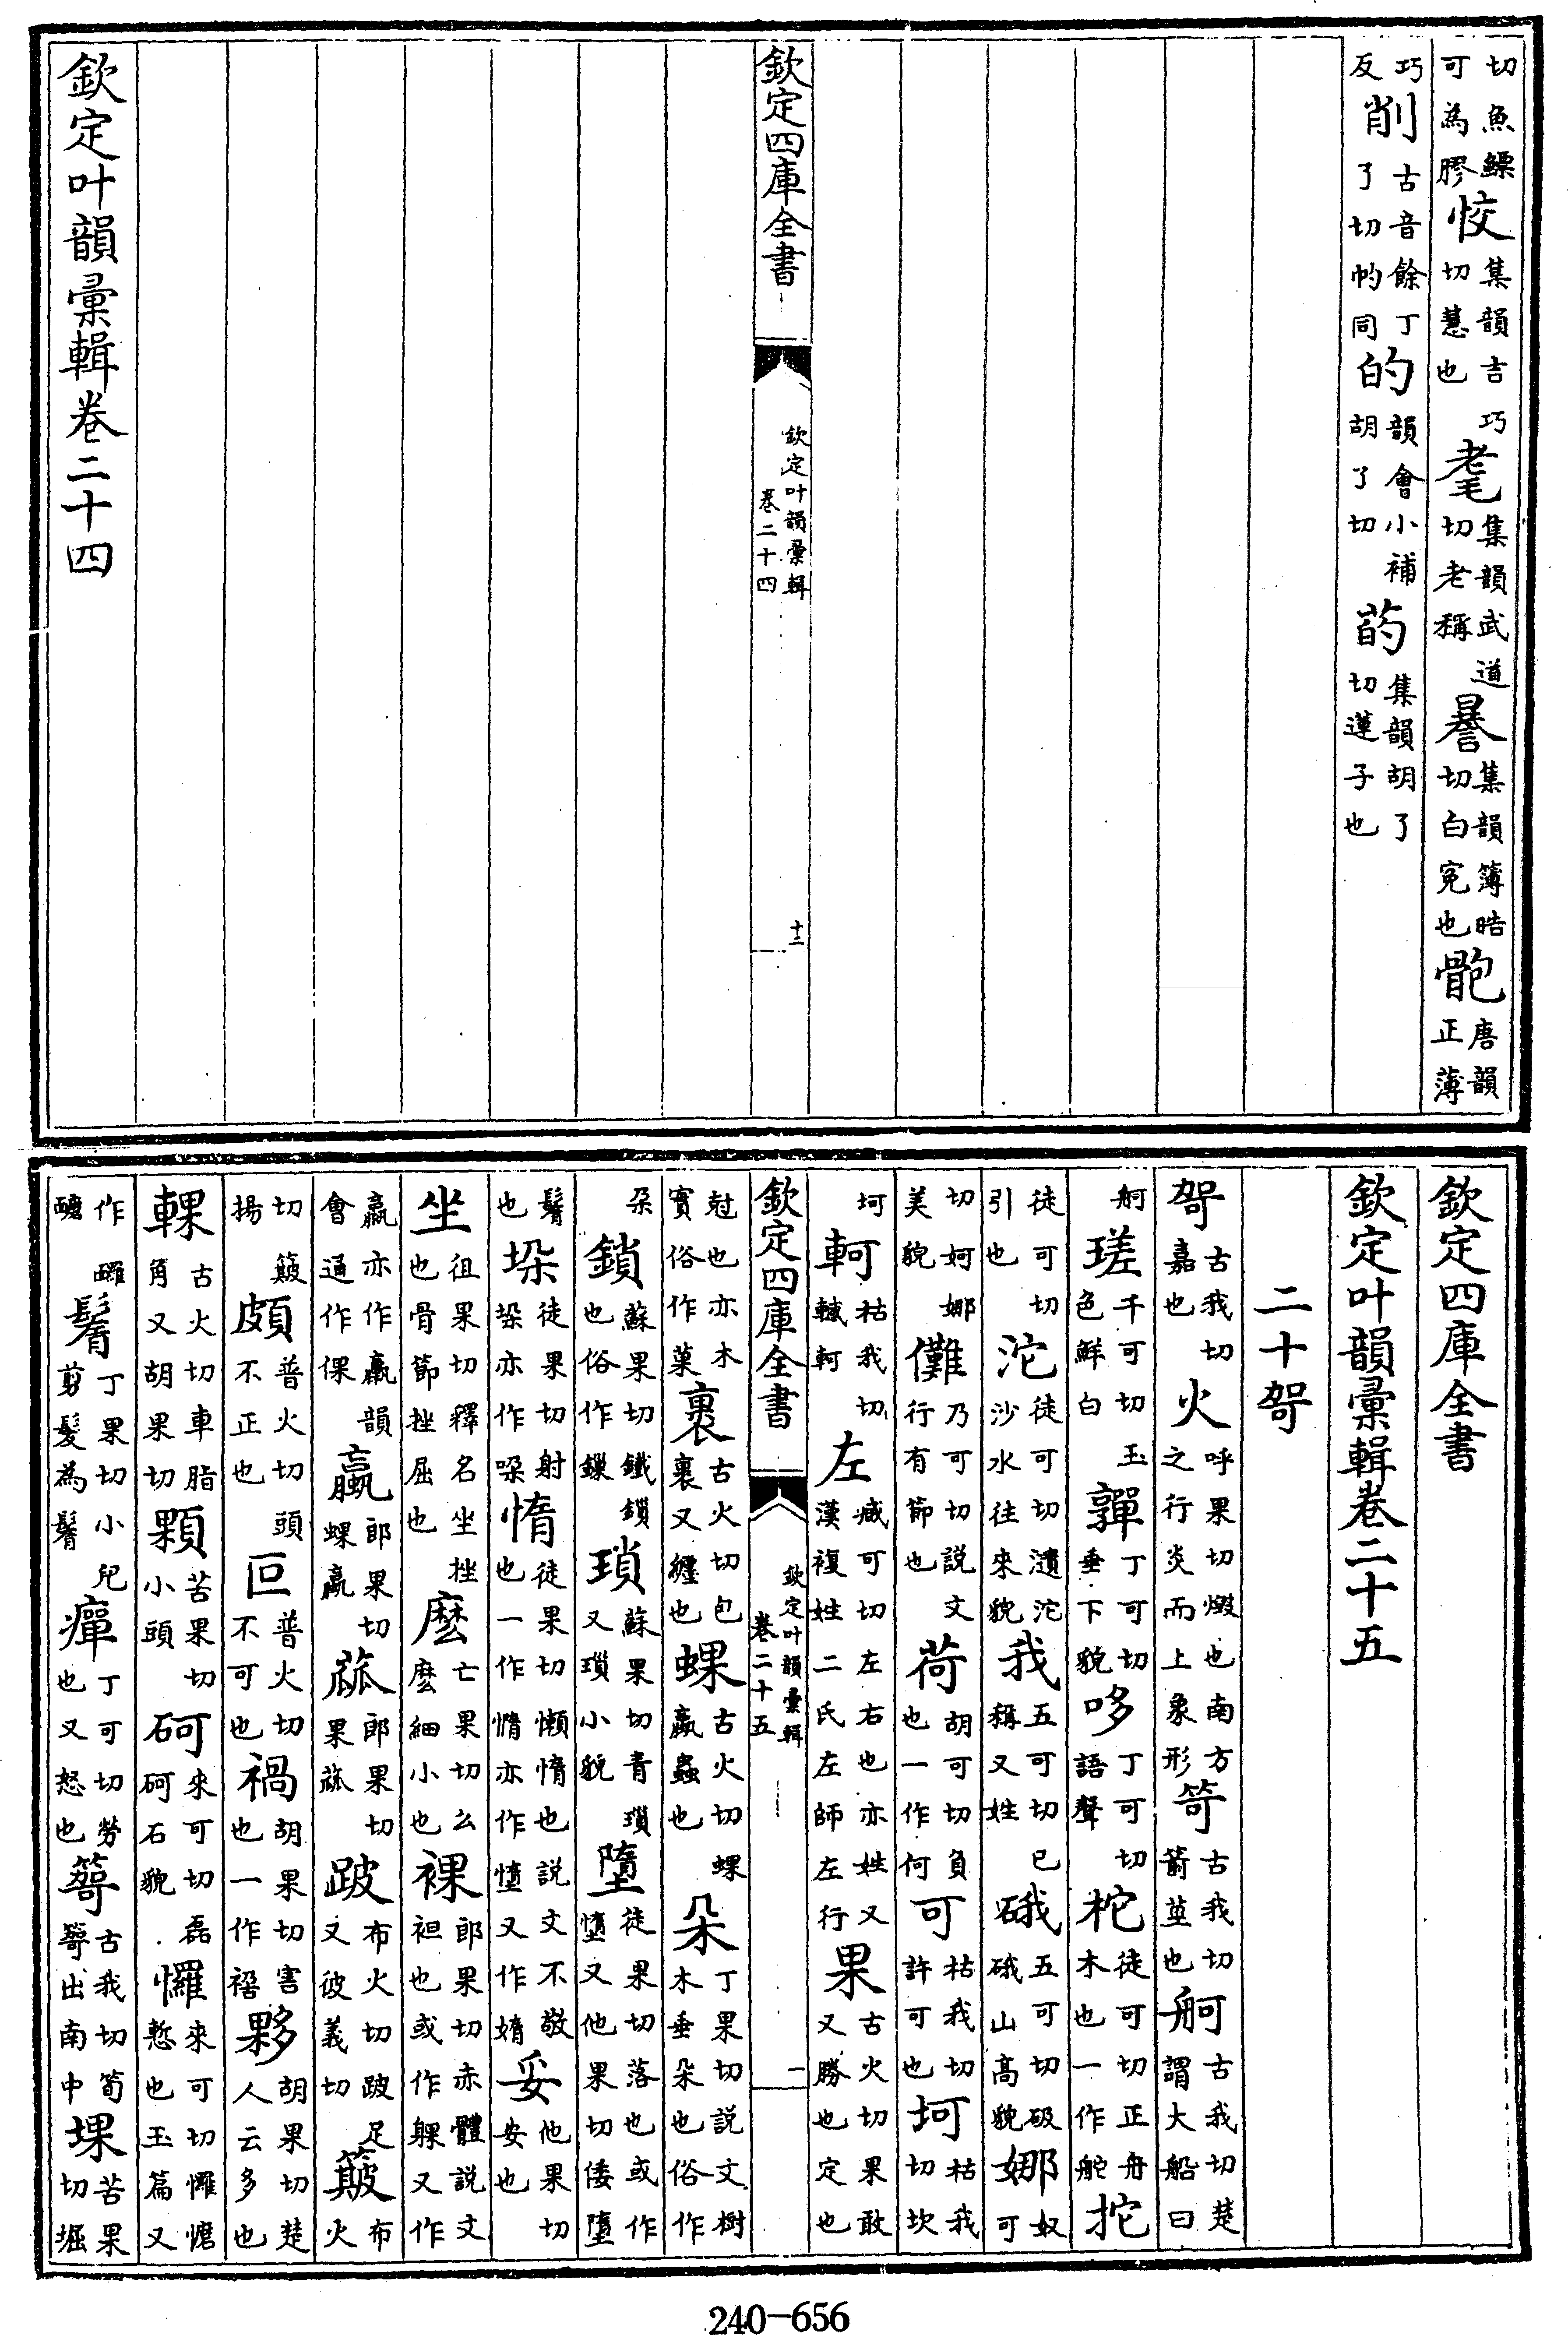 切魚鰾可為膠恔集韻吉巧切慧也耄集韻武道切老稱集韻簿晧切白冤也骲唐韻正薄
巧反削古音餘丁了切同的韻會小補胡了切菂集韻胡了切蓮子也
欽定四庫全書
欽定叶韻彙輯
卷二十四
十二
欽定叶韻彙輯卷二十四
欽定四庫全書
欽定叶韻彙輯卷二十五
二十哿
哿古我切嘉也火呼果切燬也南方之行炎而上象形笴古我切箭莖也舸古我切楚謂大船曰
舸瑳千可切玉色鮮白嚲丁可切垂下貌哆丁可切語聲柁徒可切正舟木也一作舵拕
徒可切引也沱徒可切瀢沱沙水往來貌我五可切已稱又姓硪五可切砐硪山高貌娜奴可
切妸娜美貌儺乃可切説文行有節也荷胡可切負也一作何可枯我切許可也坷枯我切坎
坷軻枯我切轗軻左臧可切左右也亦姓又漢複姓二氏左師左行果古火切果敢又勝也定也
欽定四庫全書
欽定叶韻彙輯
卷二十五
一
尅也亦木實俗作菓裹古火切包裹又纏也蜾古火切蜾蠃蟲也朵丁果切説文樹木垂朵也俗作
朶鎖蘇果切鐵鎖也俗作鏁瑣蘇果切青瑣又瑣小貌墮徒果切落也或作墯又他果切倭墮
鬌也垜徒果切射垜亦作垛惰徒果切懶惰也一作惰亦作憜説文不敬也又作媠妥他果切安也
坐徂果切釋名坐挫也骨節挫屈也麽亡果切么麽細小也裸郎果切赤體説文袒也或作躶又作
臝亦作蠃韻會通作倮蠃郎果切蜾蠃蓏郎果切果蓏跛布火切跛足又彼義切簸布火
切簸揚頗普火切頭不正也叵普火切不可也禍胡果切害也一作旤夥胡果切楚人云多也
輠古火切車脂角又胡果切顆苦果切小頭砢來可切磊砢石貌㦬來可切㦬㦬慙也玉篇又
作鬌丁果切小兒剪髮為鬌癉丁可切勞也又怒也䈓古我切筍䈓出南中堁苦果切堀